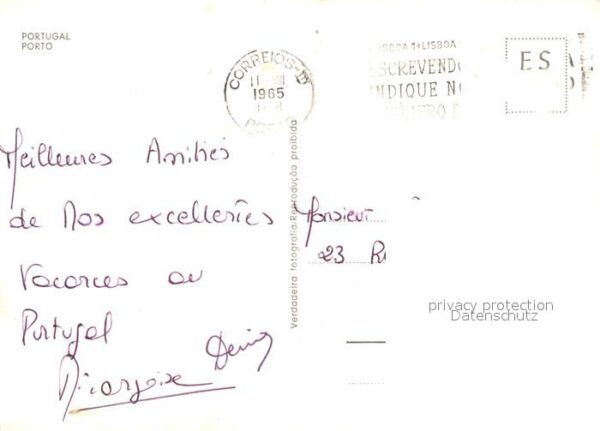 PORTUGAL
PORTO
CORREIOS
1965
LISBOA 1 • LISBOA
ESCREVENDO
INDIQUE
ES
Meilleures Amitiés
de Nos excellentes
Vacances au
Portugal
Denis
Monsieur
23 R
Verdadeira fotografia. Reprodução proibida
privacy protection
Datenschutz